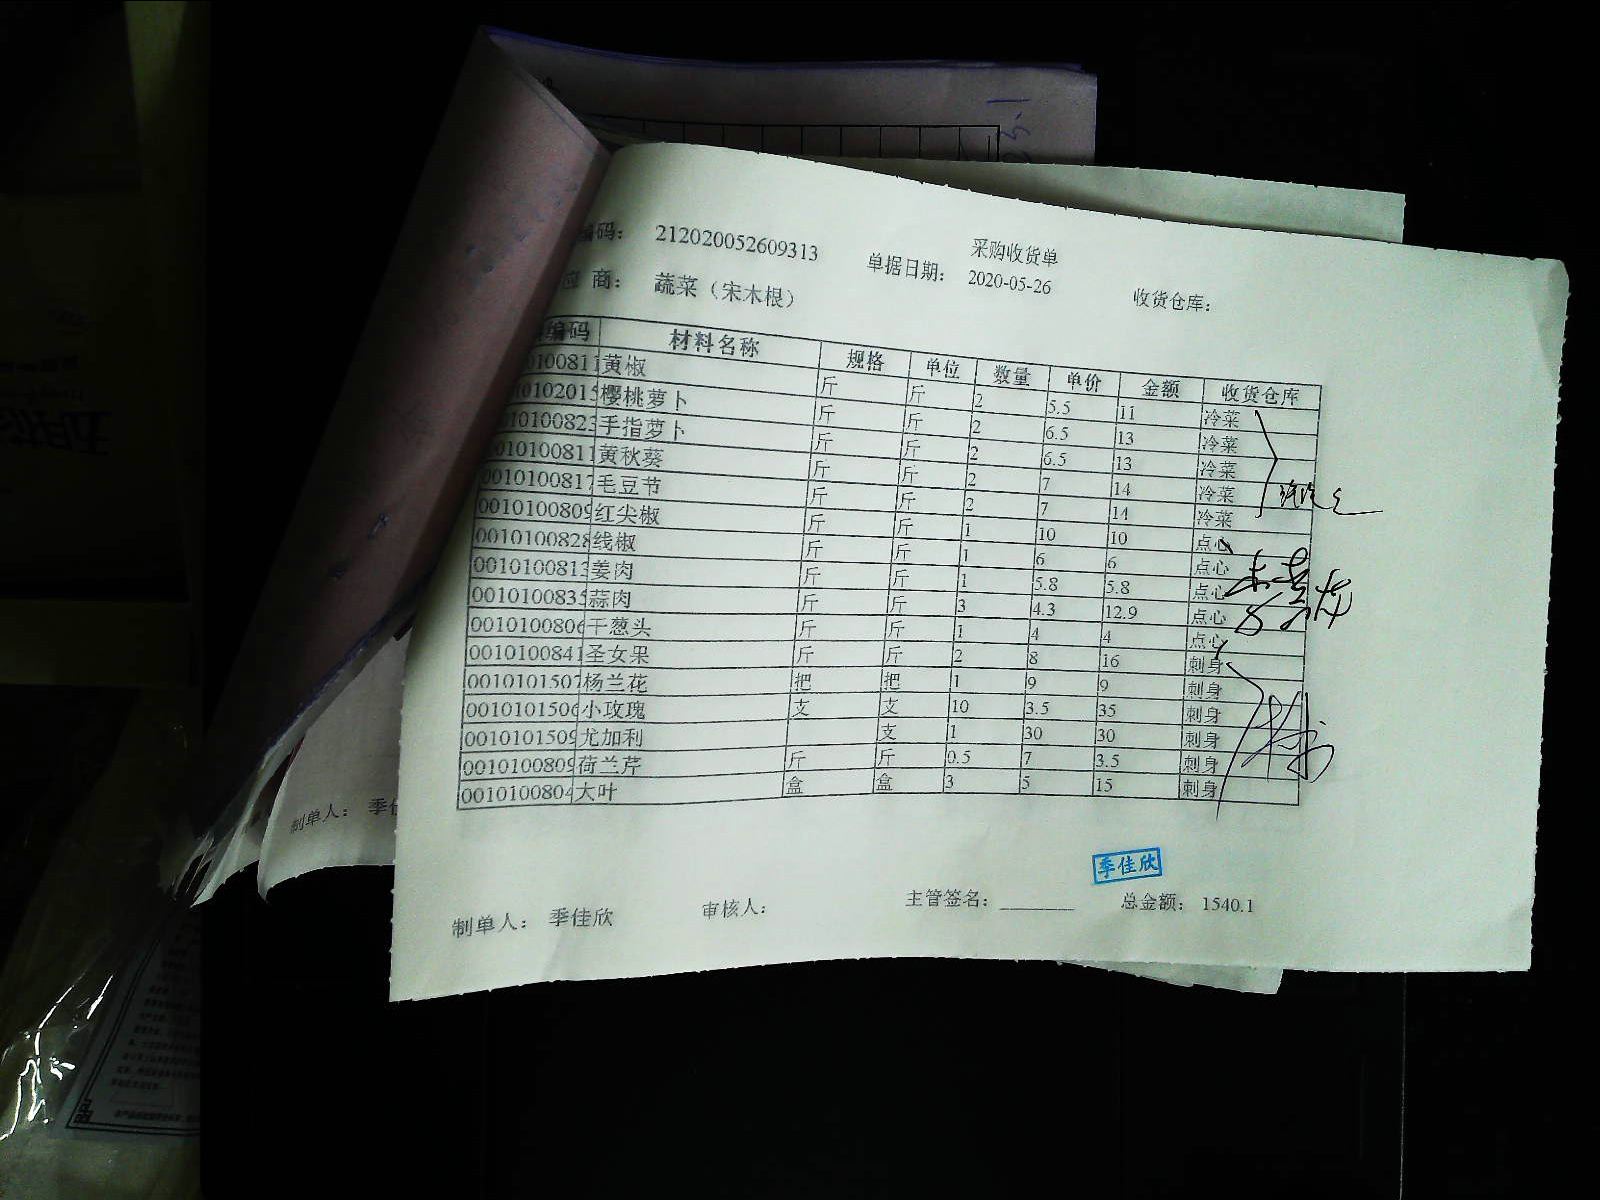 采购收货单
编码： 212020052609313 单据日期： 2020-05-26 收货仓库：
应 商： 蔬菜（宋木根）
编码 材料名称 规格 单位 数量 单价 金额 收货仓库
0100811 黄椒 斤 斤 2 5.5 11 冷菜
0102015 樱桃萝卜 斤 斤 2 6.5 13 冷菜
10100823 手指萝卜 斤 斤 2 6.5 13 冷菜
010100811 黄秋葵 斤 斤 2 7 14 冷菜
0010100817 毛豆节 斤 斤 2 7 14 冷菜
0010100809 红尖椒 斤 斤 1 10 10 点心
0010100828 线椒 斤 斤 1 6 6 点心
0010100813 姜肉 斤 斤 1 5.8 5.8 点心
0010100835 蒜肉 斤 斤 3 4.3 12.9 点心
0010100806 干葱头 斤 斤 1 4 4 点心
0010100841 圣女果 斤 斤 2 8 16 刺身
0010101507 杨兰花 把 把 1 9 9 刺身
0010101506 小玫瑰 支 支 10 3.5 35 刺身
0010101509 尤加利 支 1 30 30 刺身
0010100809 荷兰芹 斤 斤 0.5 7 3.5 刺身
0010100804 大叶 盒 盒 3 5 15 刺身
季佳欣
制单人： 季佳欣 审核人： 主管签名： 总金额： 1540.1
制单人： 季